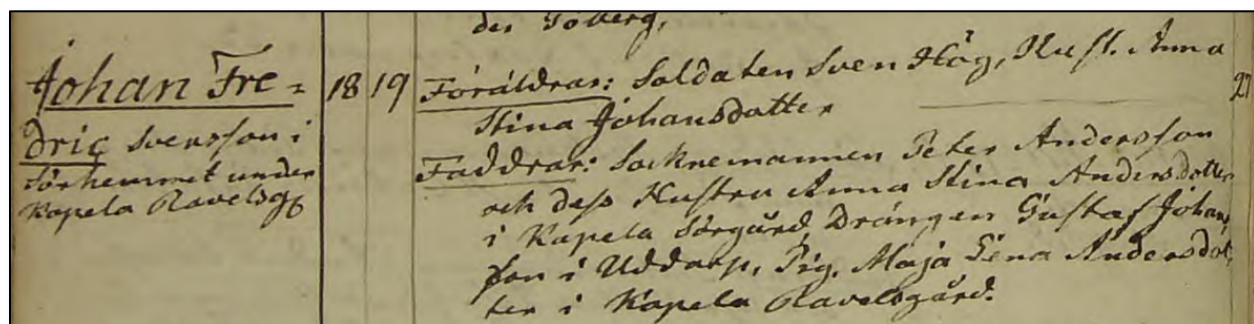 der Töberg,
Johan Fre=
dric Svensson i
Sörhemmet under
Kapela Ravelsg
18 19
Föräldrar: Soldaten Sven Hög, Hust. Anna
Stina Johansdotter
Faddrar: Socknemannen Peter Andersson
och dess Hustru Anna Stina Andersdotter
i Kapela Sörgård, Drängen Gustaf Johans
son i Uddarp, Pig. Maja Lena Andersdot
ter i Kapela Ravelsgård.
27